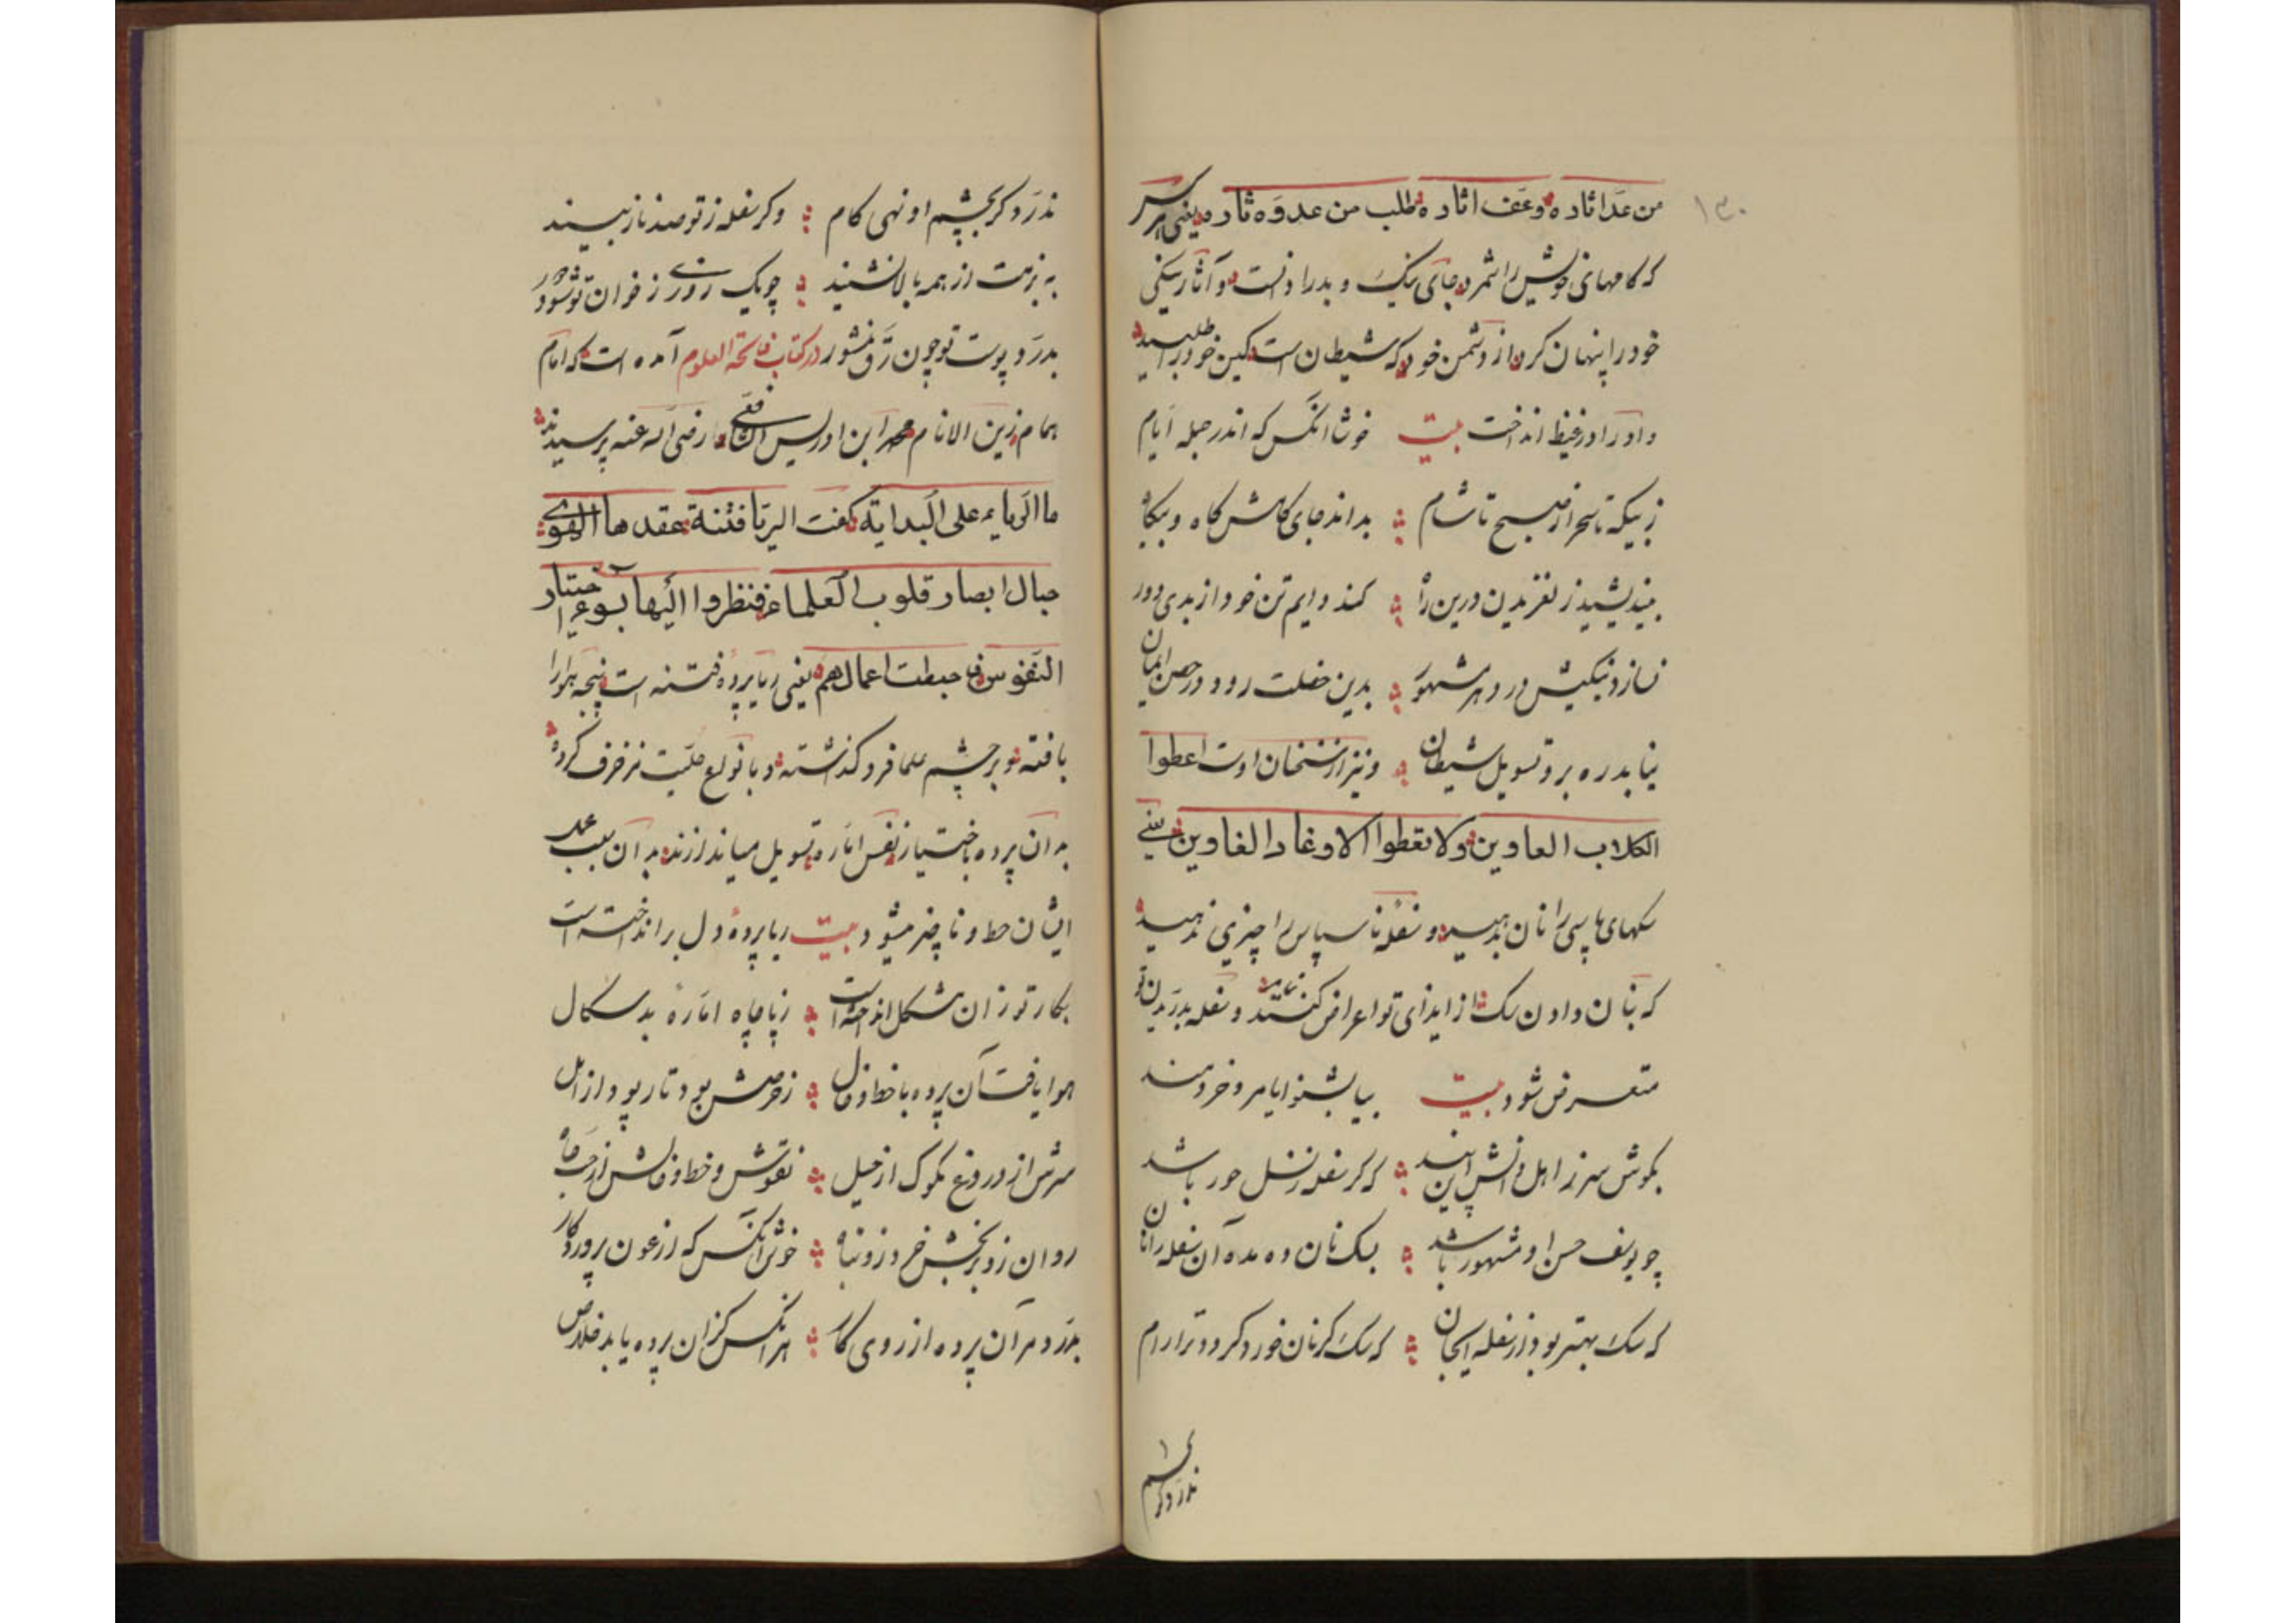 ۱۳۰
من عدّ اثاره وعف اثاره طلب من عدوه ثاره یعنی هر کس
که کامهای خویش را شمرد جای نیک و بد را دانست و آثار نیکی
خود را پنهان کرد از دشمن خود که شیطان است کین خود را طلبید
و او را در غیظ انداخت بیت خوشا انکس که اندر جمله ایام
ز نیکه تا سحر از صبح تا شام بداند جای کامش گاه و بیگاه
بیندیشید ز لغزیدن درین راه کند دایم تن خود از بدی دور
نسازد نیکیش در دهر مشهور بدین خصلت رود در حصن ایمان
نیابد ره برو تسویل شیطان و نیز از سخنان اوست اعطوا
الکلاب العاوین ولا تعطوا الاوغاد الغاوین یعنی
سگهای پاسی را نان بدهید و سفله ناسپاس را چیزی ندهید
که بنان دادن سگ از ایذای تو اعراض کننده و سفله بدریدن تو
متعرض شود بیت بیا بشنو ایا مرد خردمند
بگوش سر ز اهل دانش این پند که گر سفله ز نسل حور باشد
چو یوسف حسن او مشهور باشد بسگ نان ده مده آن سفله را نان
که سگ بهتر بود از سفله ایجان که سگ گر نان خورد گردد ترا رام
ندرد گر بچشم
ندرد گر بچشم او نهی کام وگر سفله ز تو صد ناز بیند
به نزهت از همه بالا نشیند چو یک روزی ز خوان تو شود دور
بدرد پوست تو چون رق منشور در کتاب فاتحة العلوم آمده است که امام
همام زین الانام محمد ابن ادریس الشافعی را رضی الله عنه پرسیدند
ما الریاء علی البدایة گفت الریا فتنة عقدها الهوی
حیال ابصار قلوب العلماء فنظروا الیها بسوء اختیار
النفوس فحبطت اعمالهم یعنی ریا پرده فتنه است پنجه هوا را
بافته و بر چشم علما فرو گذاشته و بانواع حلیت مزخرف کرده
به آن پرده باختیار نفس اماره تسویل میاندازند به آن سبب عمل
ایشان حبط و ناچیز میشود بیت ریا پردۀ دل برانداخته است
بکار تو زان مشکل انداخته است ز پا چاه امارۀ بدسگال
هوا یافت آن پرده با خط و خال ز حرصش بود تار پود از امل
سرش از دروغ مکوک از حیل نقوش و خط و خالش از حب جاه
روان زو بر بخشش خرد زو تباه خوش آنکس که از عون پروردگار
بدرد مر آن پرده از روی کار هر آنکس کزان پرده یابد خلاص